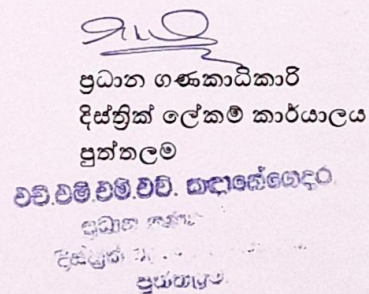 ප්‍රධාන ගණකාධිකාරි
දිස්ත්‍රික් ලේකම් කාර්යාලය
පුත්තලම
එච්.එම්.එම්.එච්.
ප්‍රධාන
දිස්ත්‍රික්
පුත්තලම